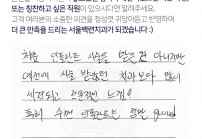 또는 칭찬하고 싶은 직원이 있으시다면 알려주세요.
고객 여러분의 소중한 의견을 정성껏 귀담아듣고 반영하며
더 큰 만족을 드리는 서울백련치과가 되겠습니다 :)
처음 임플란트 시술을 받은건 아니지만
예전에 시술 받았던 치과보다 많이
세련되고 전문적인 느낌?
특히 수면 임플란트는 정말 good